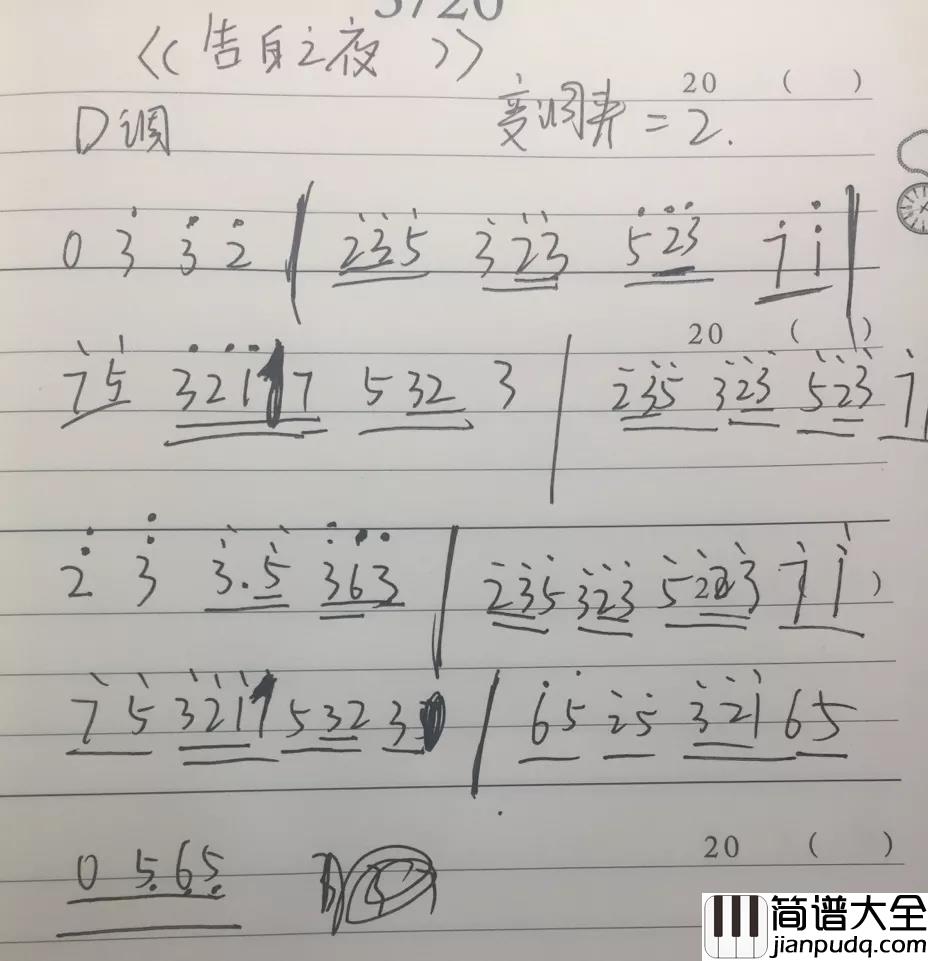 5720
《告白之夜》
20 ( )
D调 变调夹=2.
0 3 3 2 | 235 323 523 7 1 |
20 ( )
75 321 7 532 3 | 235 323 523 7
2 3 3.5 363 | 235 323 523 7 1 )
75 321 532 3 | 65 25 321 65
0 565
20 ( )
简谱大全
jianpudq.com